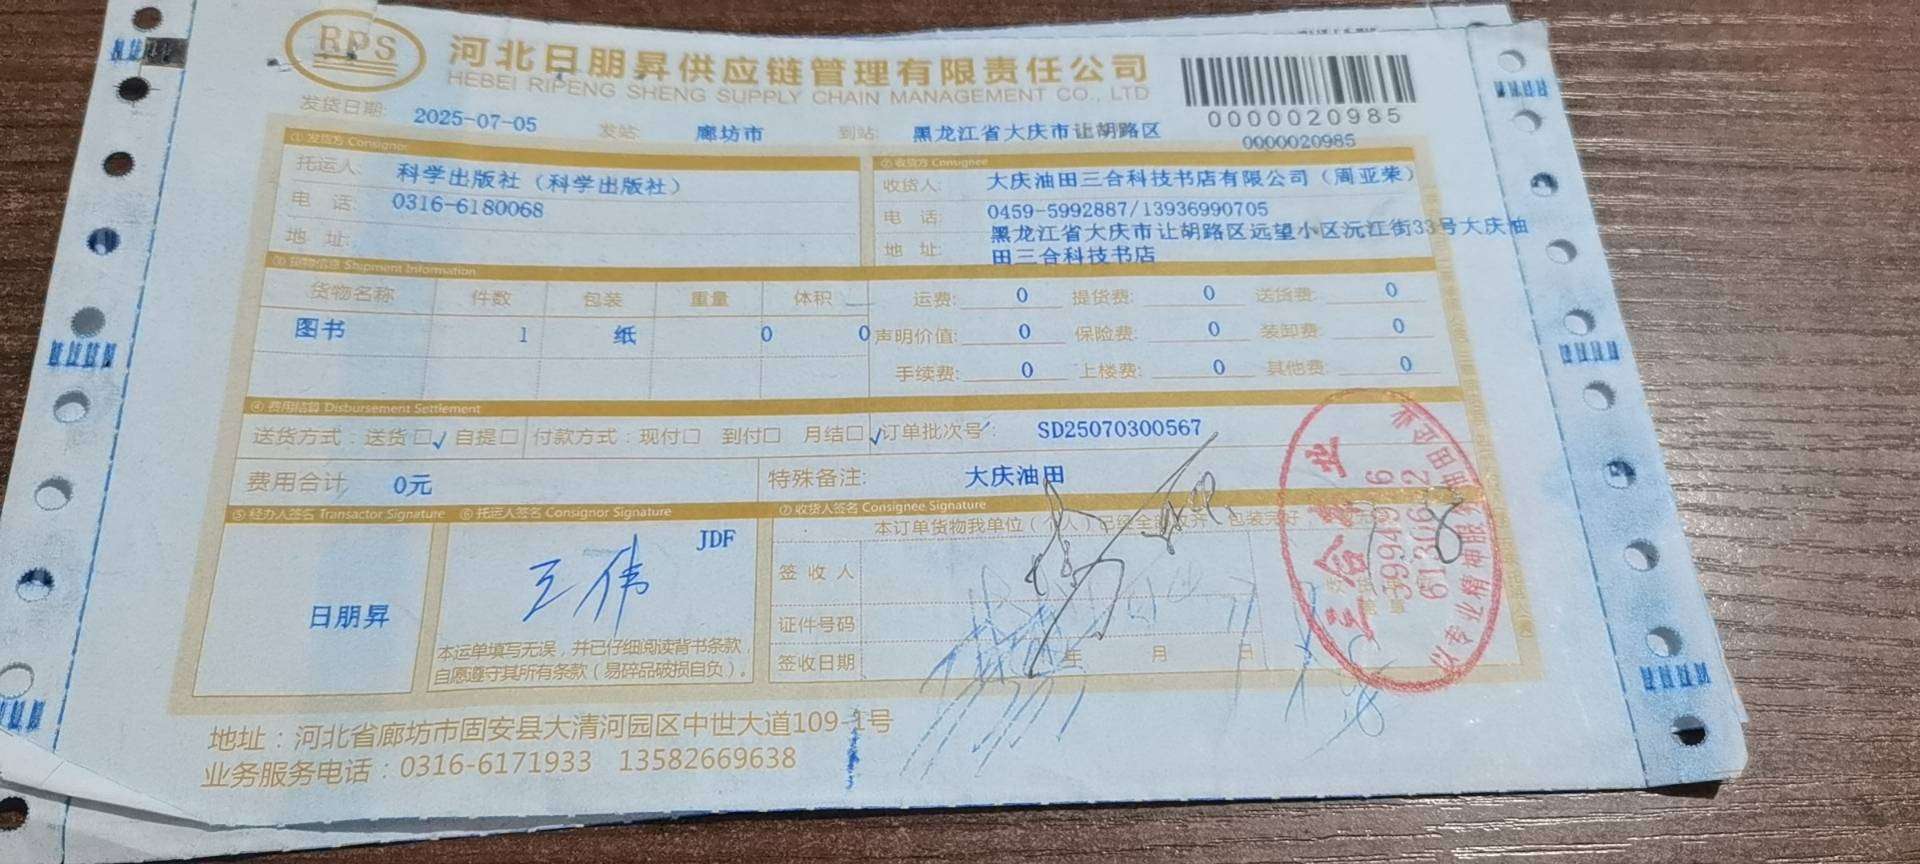 RPS
河北日朋昇供应链管理有限责任公司
HEBEI RIPENG SHENG SUPPLY CHAIN MANAGEMENT CO., LTD
0000020985
0000020985
发货日期: 2025-07-05 发站: 廊坊市 到站: 黑龙江省大庆市让胡路区
①发货方 Consignor
②收货方 Consignee
托运人: 科学出版社（科学出版社）
电 话: 0316-6180068
地 址:
收货人: 大庆油田三合科技书店有限公司（周亚荣）
电 话: 0459-5992887/13936990705
地 址: 黑龙江省大庆市让胡路区远望小区沅江街33号大庆油
田三合科技书店
③货物信息 Shipment Information
货物名称 件数 包装 重量 体积
图书 1 纸 0 0
运费: 0 提货费: 0 送货费: 0
声明价值: 0 保险费: 0 装卸费: 0
手续费: 0 上楼费: 0 其他费: 0
④费用结算 Disbursement Settlement
送货方式：送货□✓ 自提□ 付款方式：现付□ 到付□ 月结□✓ 订单批次号: SD25070300567
费用合计 0元 特殊备注: 大庆油田
⑤经办人签名 Transactor Signature ⑥托运人签名 Consignor Signature ⑦收货人签名 Consignee Signature
日朋昇
JDF
王伟
本运单填写无误，并已仔细阅读背书条款，
自愿遵守其所有条款（易碎品破损自负）。
本订单货物我单位（个人）已经全部收齐，包装完好
签 收 人
证件号码
签收日期 年 月 日
三合书业
5994976
6130612
地址：河北省廊坊市固安县大清河园区中世大道109-1号
业务服务电话：0316-6171933 13582669638